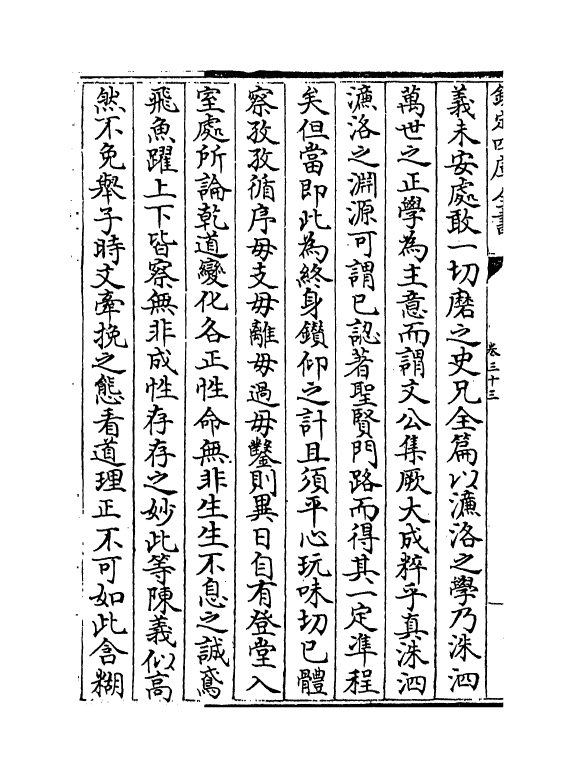 欽定四庫全書
卷三十三
義未安處敢一切磨之史兄全篇以濂洛之學乃洙泗
萬世之正學為主意而謂文公集厥大成粹乎真洙泗
濂洛之淵源可謂已認著聖賢門路而得其一定凖程
矣但當即此為終身鑚仰之計且須平心玩味切已體
察孜孜循序毋支毋離毋過毋鑿則異日自有登堂入
室處所論乾道變化各正性命無非生生不息之誠鳶
飛魚躍上下皆察無非成性存存之妙此等陳義似高
然不免舉子時文牽挽之態看道理正不可如此含糊